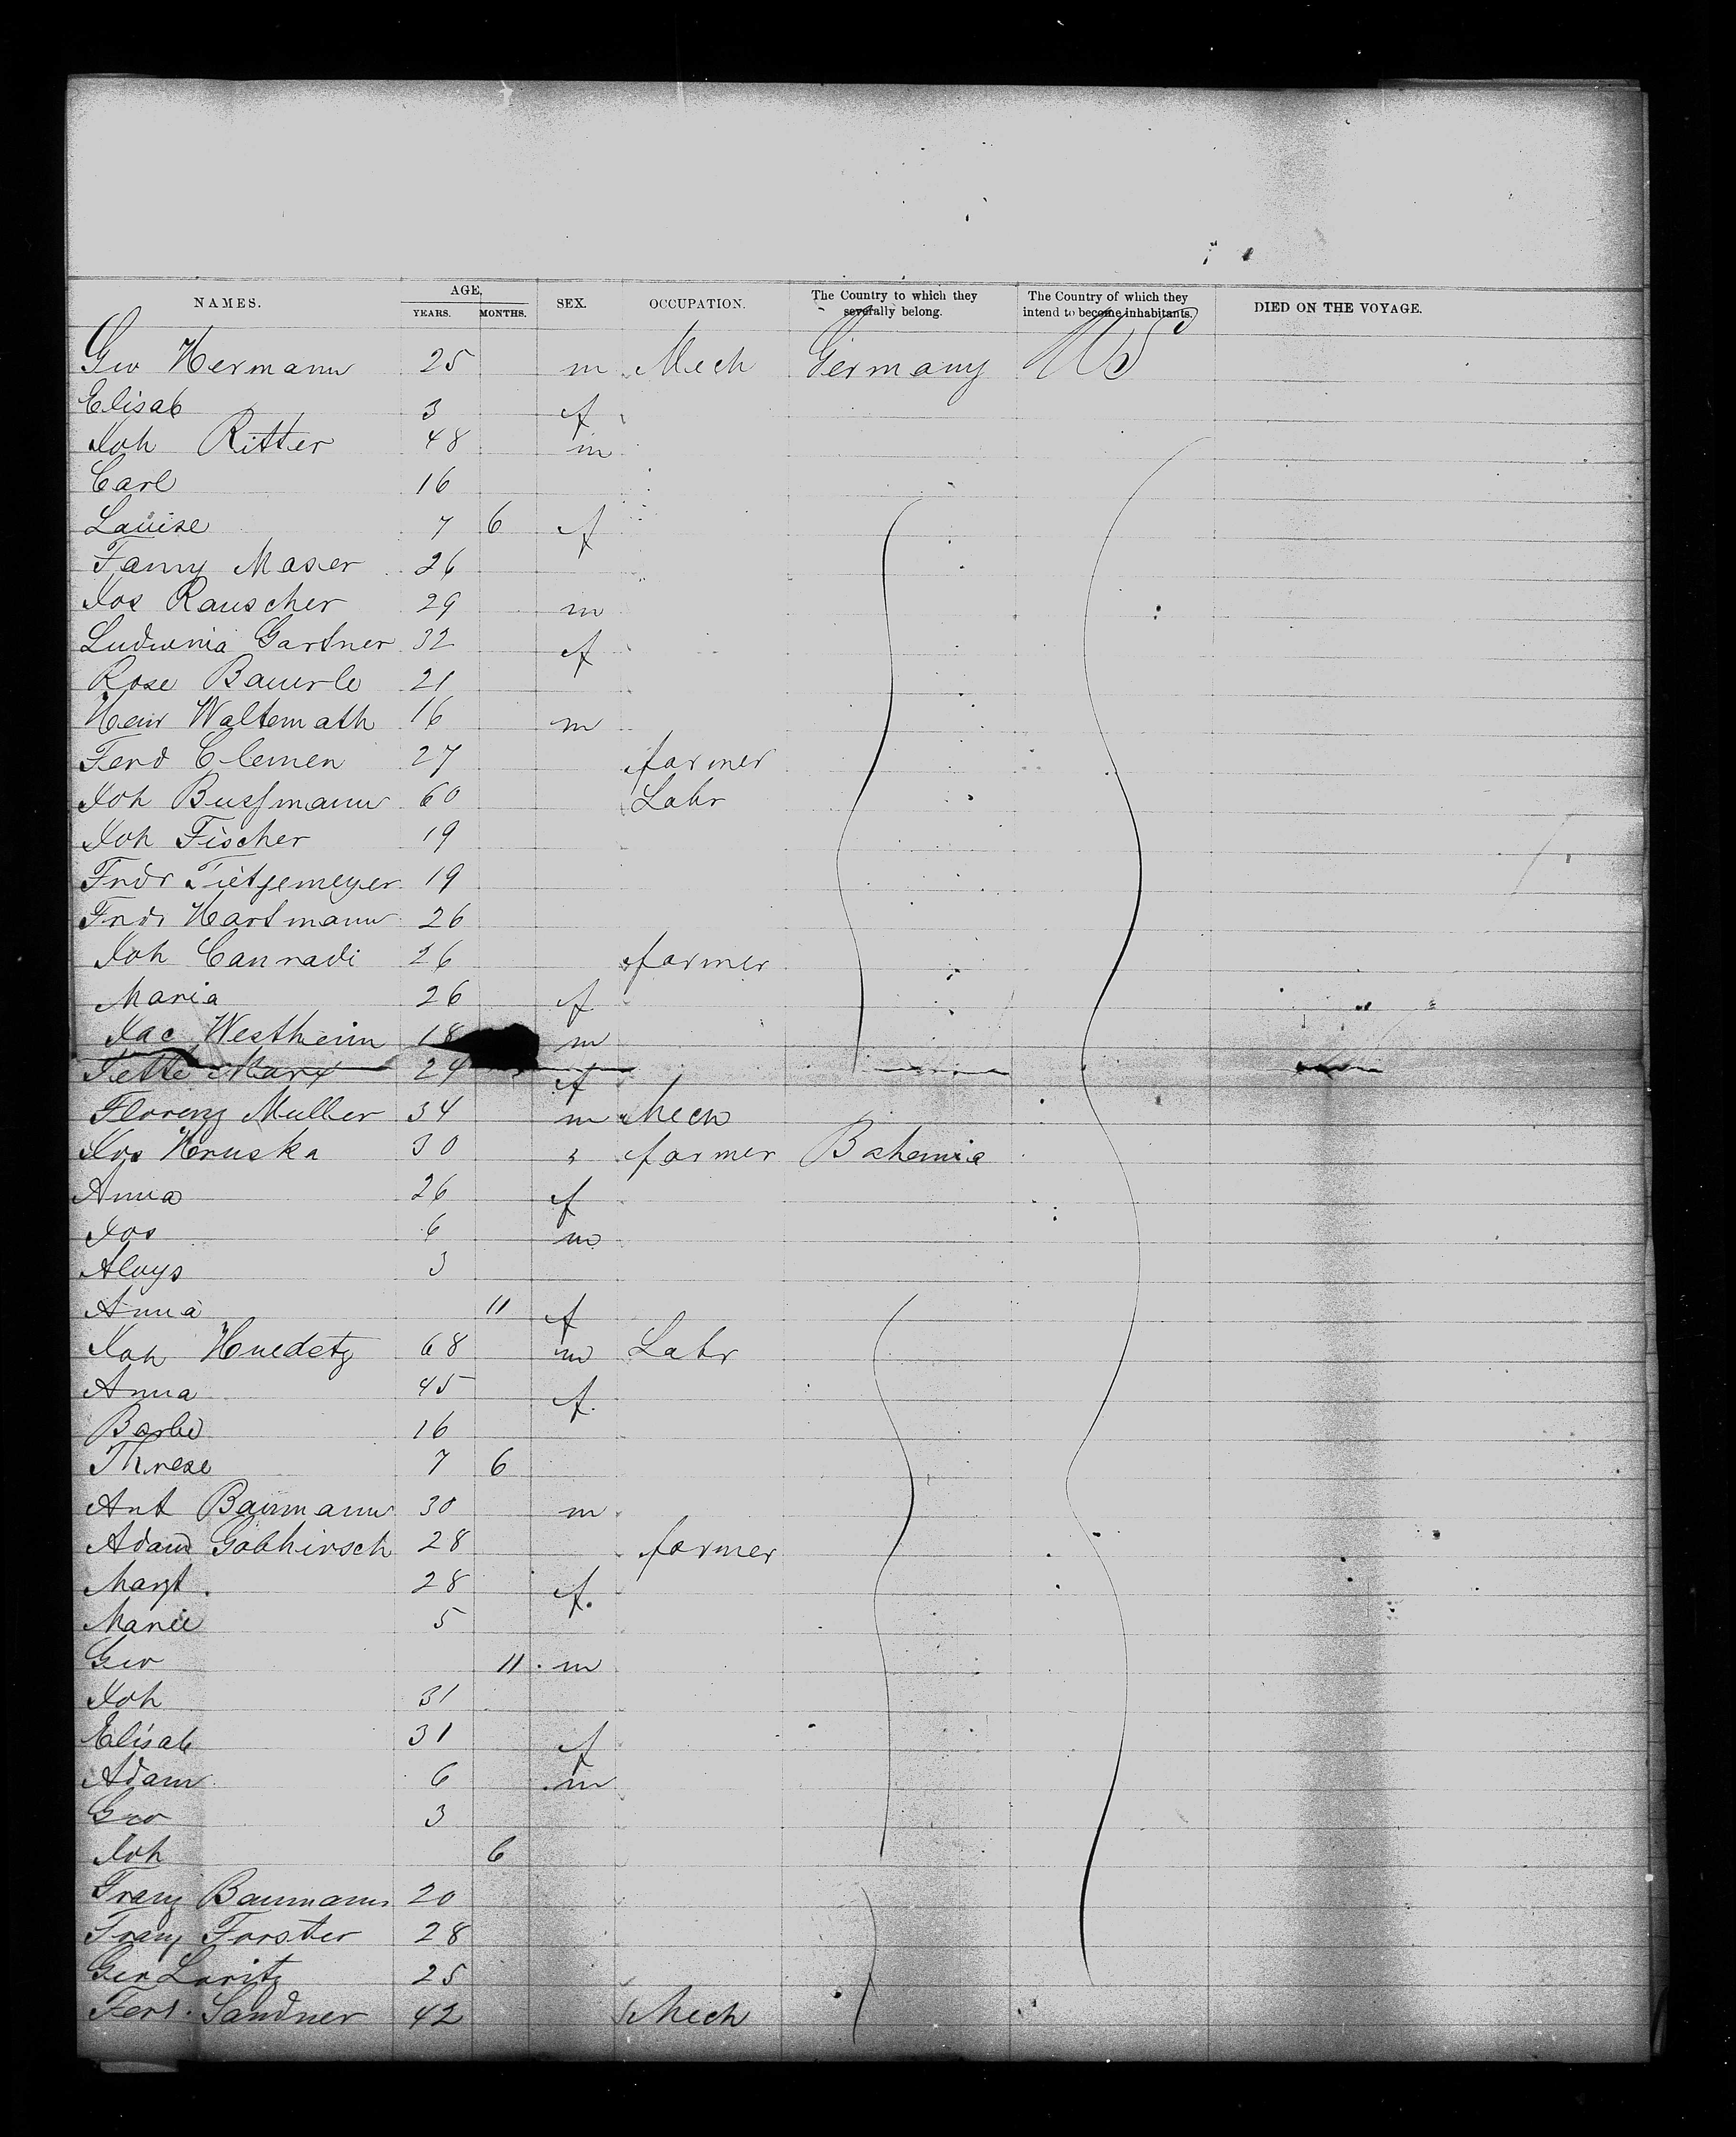 NAMES. AGE, YEARS. MONTHS. SEX. OCCUPATION. The Country to which they severally belong. The Country of which they intend to become inhabitants. DIED ON THE VOYAGE.
Geo Hermann 25 m Mech Germany US
Elisab 3 f
Joh Ritter 48 m
Carl 16
Louise 7 6 f
Fanny Maser 26
Jos Rauscher 29 m
Ludwina Gartner 32 f
Rose Bauerle 21
Heinr Waltemath 16 m
Ferd Clemen 27 farmer
Joh Bussmann 60 Labr
Joh Fischer 19
Friedr Tietjemeyer 19
Friedr Hartmann 26
Joh Conradi 26 farmer
Maria 26 f
Jac Westheim 18 m
Jette Marx 24 f
Florenz Muller 34 m Mech
Jos Hruska 30 " farmer Bohemia
Anna 26 f
Jos 6 m
Aloys 3
Anna 11 f
Joh 68 m Labr
Anna 45 f.
Barbe 16
Threse 7 6
Ant Baumann 30 m
Adam Gobhirsch 28 farmer
Margt. 28 f.
Marie 5
Geo 11 m
Joh 31
Elisab 31 f
Adam 6 m
Geo 3
Joh 6
Franz Baumann 20
Franz Forster 28
Geo Loritz 25
Ferd. Sandner 42 Mech